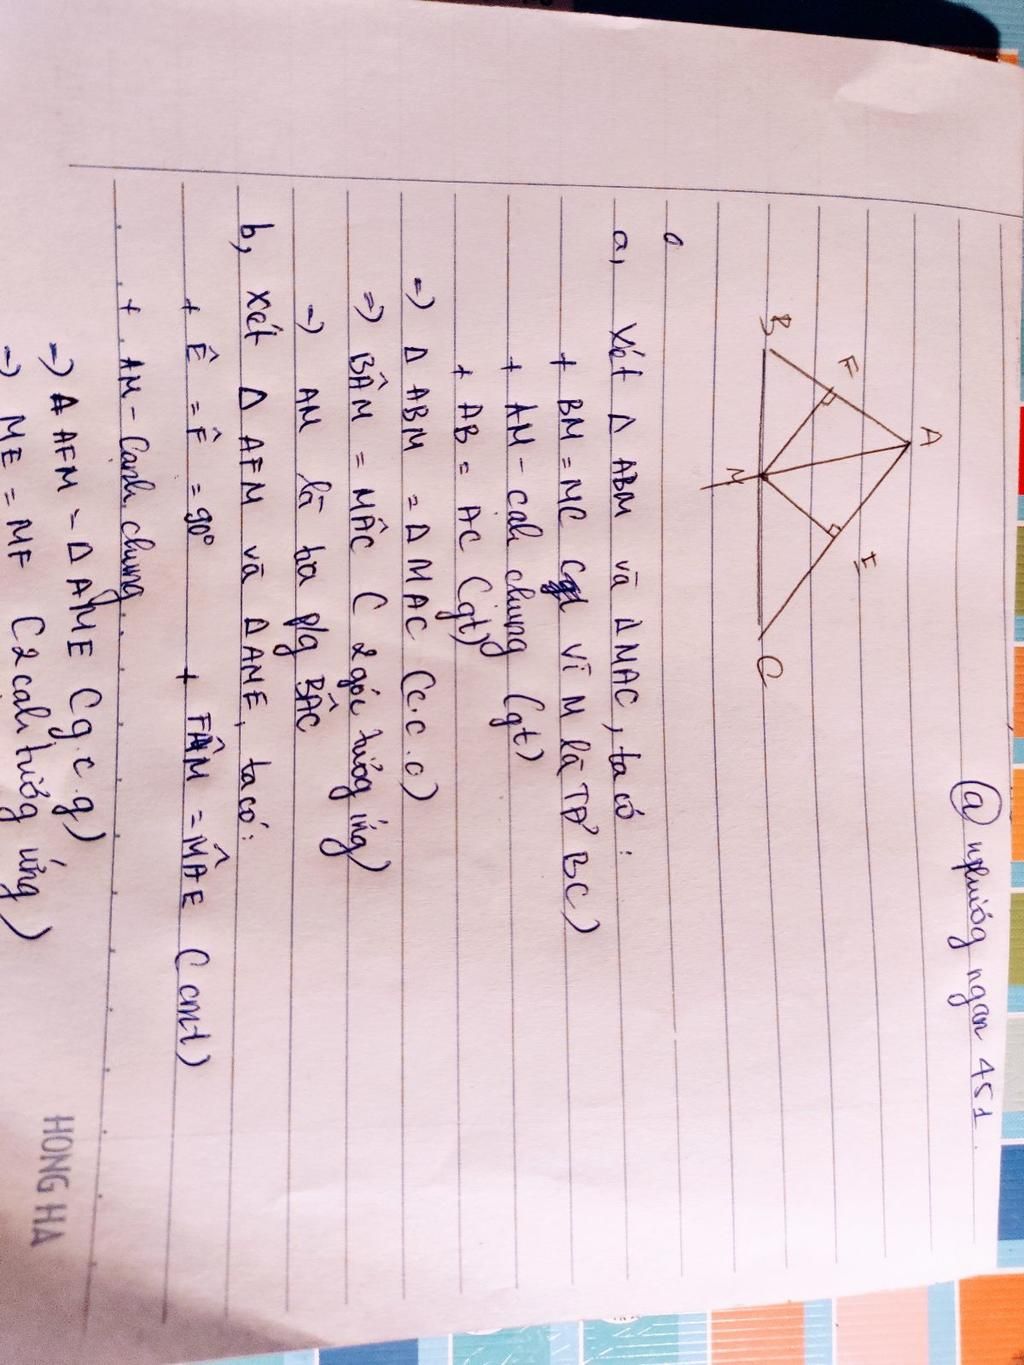 @ nphuog ngan 451
A
F
E
B
M
C
a, Xét Δ ABM và Δ MAC, ta có:
+ BM = MC ( vì M là TĐ BC)
+ AM - cah chung (gt)
+ AB = AC (gt)
=) Δ ABM = Δ MAC (c.c.c)
=) BÂM = MÂC ( 2 góc tướg ứng)
=) AM là tia p/g BÂC
b, Xét Δ AFM và Δ AME, ta có:
+ Ê = F̂ = 90° + FÂM = MÂE ( cmt)
+ AM - Cạnh chung
=) Δ AFM = Δ AME (g.c.g)
=) ME = MF ( 2 cah tướg ứng)
HONG HA